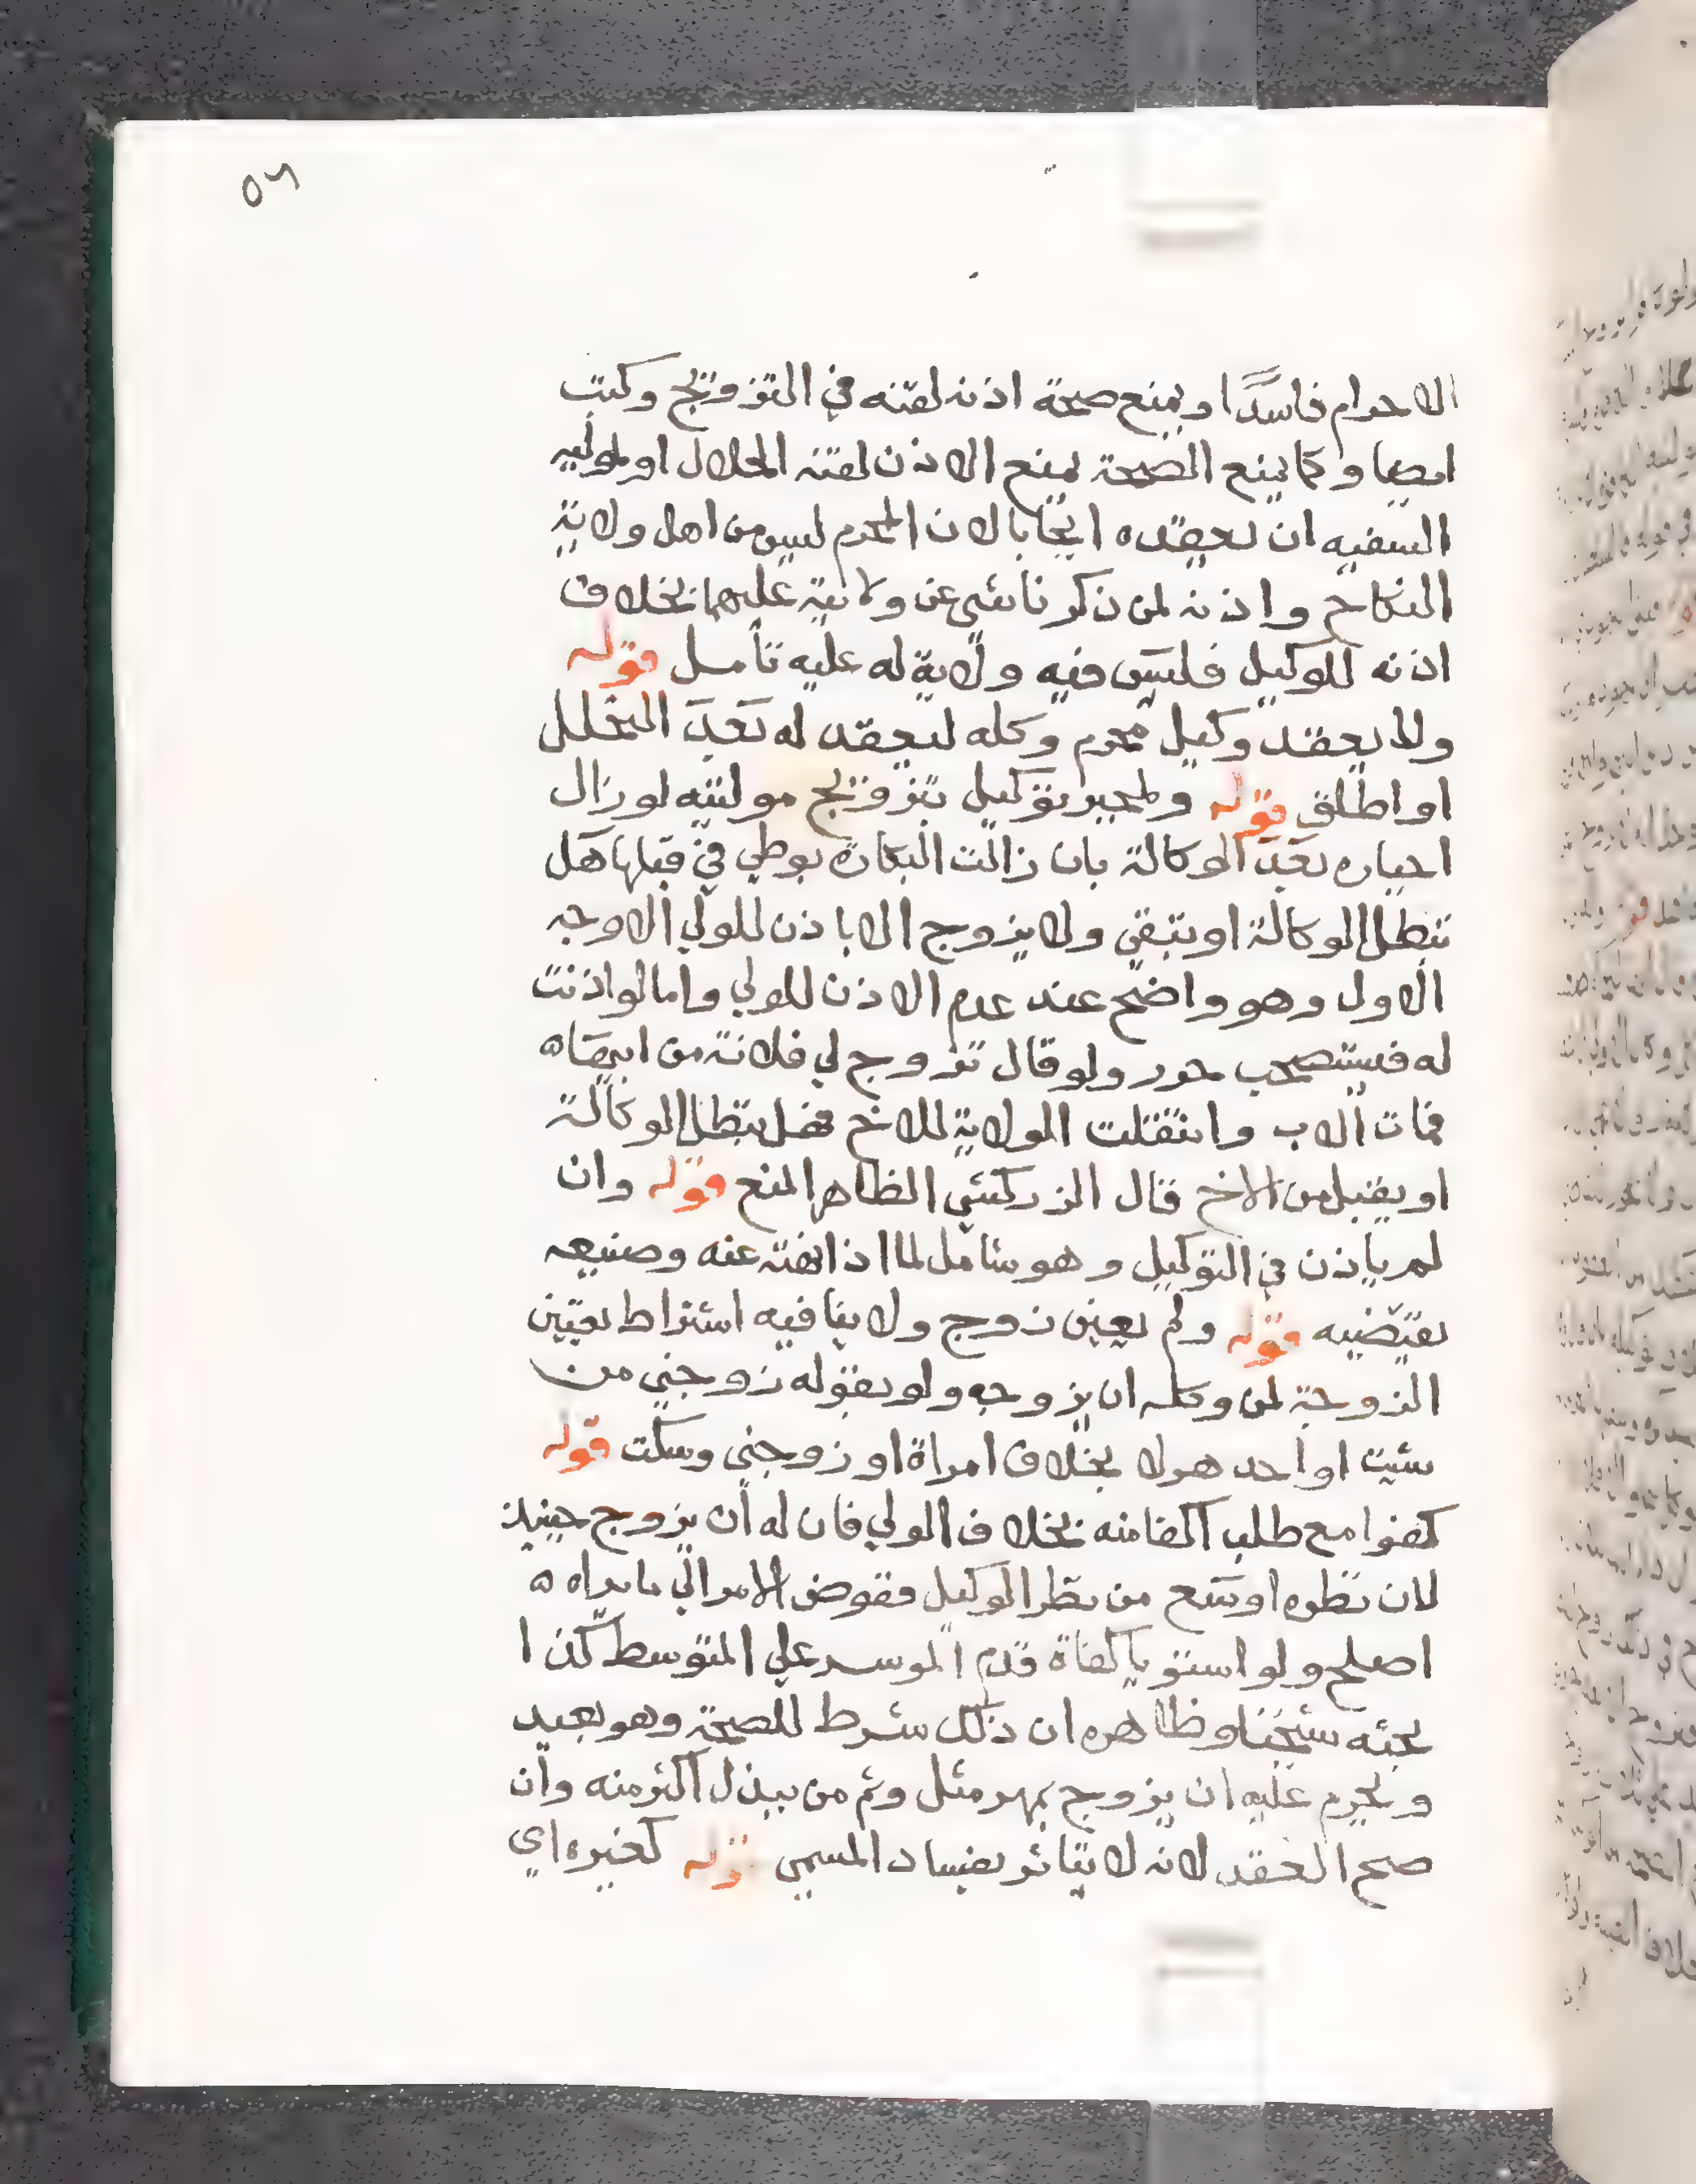 ٥٦
الاحرام فاسدًا ويمنع صحة اذنه لقنه في التزويج وكتب
ايضا وكما يمنع الصحة يمنع الاذن لقنه الحلال او لموليه
السفيه ان يعقده ايجابا لان المحرم ليس من اهل ولاية
النكاح واذنه لمن ذكر ناشي عن ولايته عليهما بخلاف
اذنه للوكيل فليس فيه ولاية له عليه تأمل قوله
ولا يعقد وكيل محرم وكله ليعقد له بعد التحلل
او اطلق قوله ولمجبر توكيل بتزويج موليته لو زال
اجباره بعد الوكالة بان زالت البكارة بوطي في قبلها هل
تبطل الوكالة او تبقي ولا يزوج الا باذن للولي الاوجه
الاول وهو واضح عند عدم الاذن للولي واما لو اذنت
له فيستصحب حرر ولو قال تزوج لي فلانة من ابيها ه
فمات الاب وانتقلت الولاية للاخ فهل تبطل الوكالة
او يقبل من الاخ قال الزركشي الظاهر المنع قوله وان
لم ياذن في التوكيل وهو شامل لما اذا نهته عنه وصنيعه
يقتضيه قوله ولم يعين زوج ولا ينافيه اشتراط تعيين
الزوجة لمن وكله ان يزوجه ولو بقوله زوجني من
شيت او احد هولا بخلاف امراة او زوجني وسكت قوله
كفوا مع طلب اكفا منه بخلاف الولي فان له ان يزوج حينيذ
لان نظره اوسع من نظر الوكيل ففوض الامر الي ما يراه ه
اصلح ولو استويا كفاة قدم الموسر علي المتوسط كذا
بحثه شيخنا وظاهره ان ذلك شرط للصحة وهو بعيد
ويحرم عليه ان يزوج بمهر مثل وثم من يبذل اكثر منه وان
صح العقد لانه لا يتاثر بفساد المسمي قوله كغيره اي